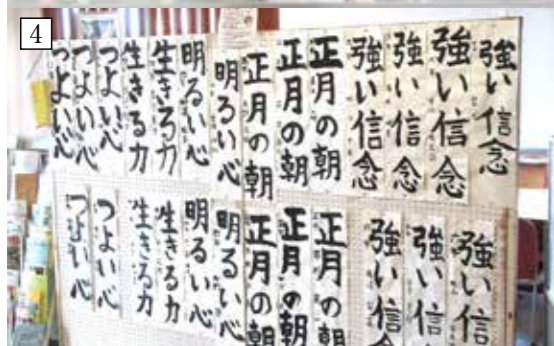 4
強い信念
強い信念
強い信念
強い信念
正月の朝
正月の朝
正月の朝
明るい心
明るい心
生きる力
生きる力
つよい心
つよい心
つよい心
強い信
強い信
強い信
正月の朝
正月の朝
正月の朝
明るい心
明るい心
生きる力
生きる力
つよい心
つよい心